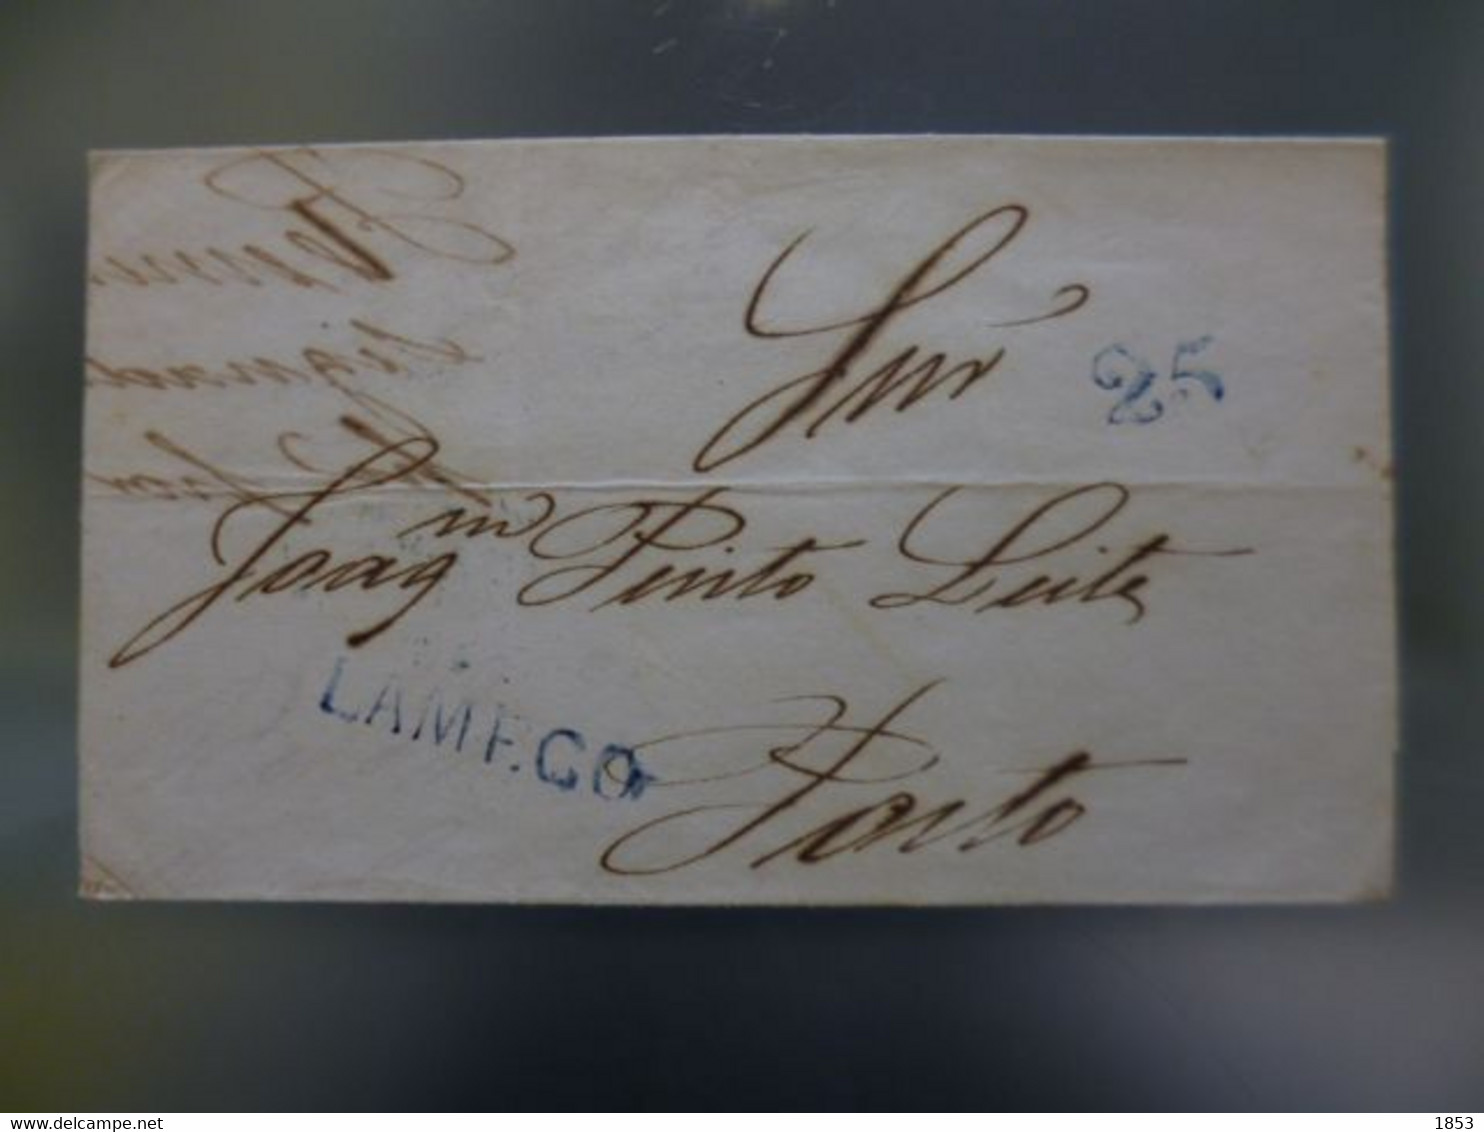 Snr
25
Joaqm Pinto Leite
LAMEGO
Porto
delcampe.net
the_collector
1853